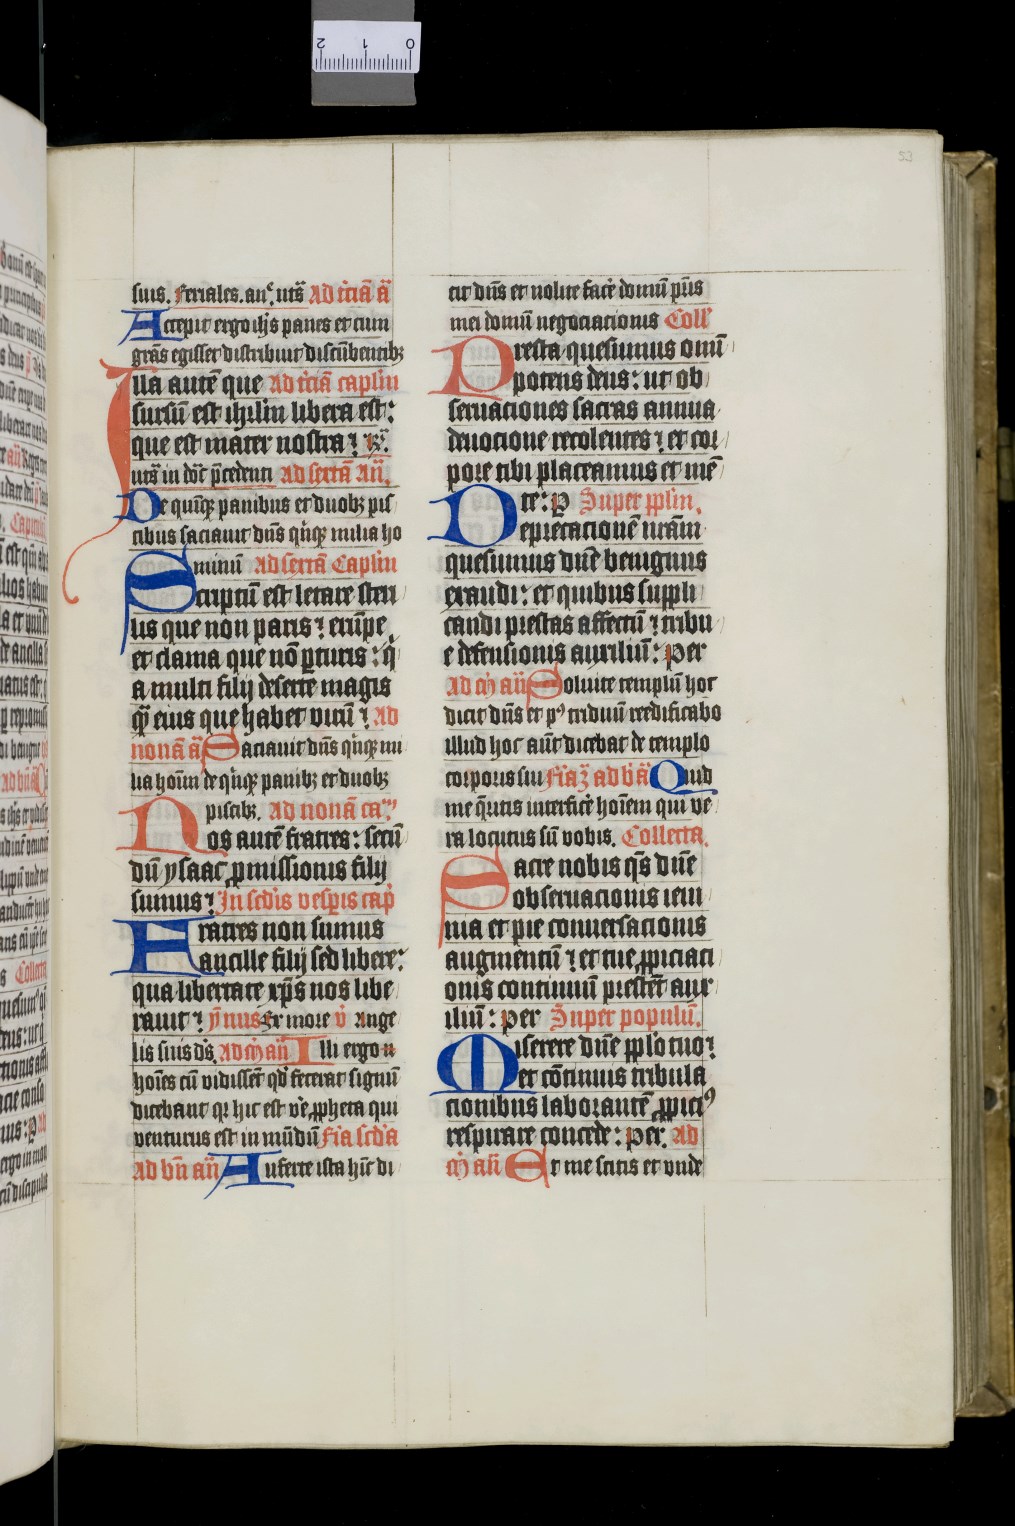 suis. Feriales. an͛. utš Ad t̄ciā ā
Accepit ergo ih̄s panes et cum
grās egisset distribuit discūbentibꝫ
Illa autē que Ad t̄ciā caplm̄
sursū est ih̄rl̄m libera est:
que est mater nostra ⁊ ꝶ.
utš in dōc p̄cedenti Ad sextā An̄.
De quīqꝫ panibus et duobꝫ pis
cibus saciauit dn̄s qⁱqꝫ milia ho
minū Ad sextā Caplm̄
Scriptū est letare steri
lis que non paris ⁊ erūpe
et clama que nō ꝑturis: q̄
a multi filij deserte magis
qᷓ eius que habet virū ⁊ Ad
nonā ā Saciauit dn̄s qⁱqꝫ mi
lia hoīm de qⁱqꝫ panibꝫ et duobꝫ
piscibꝫ. Ad nonā ca.
Nos autē fratres: secū
dū ysaac ꝓmissionis filij
sumus ⁊ In sēdis vesꝑis cap̄
Fratres non sumus
ancille filij sed libere:
qua libertate xp̄s nos libe
rauit ⁊ ẏnus Ex more v̇ Ange
lis suis ds̄. Ad m̄ an̄ Illi ergo
hoīes cū vidissēt qd̄ fecerat signū
dicebant qꝛ hic est vē ꝓpheta qui
venturus est in mūdū Fīa scd̄a
Ad bn̄ an̄ Auferte ista hīc di
cit dn̄s et nolite facē domū pr̄is
mei domū negociacionis Coll̄
Presta quesumus omī
potens deus: ut ob
seruaciones sacras annua
deuocione recolentes ⁊ et cor
pore tibi placeamus et mē
te: ꝑ Super ppl̄m.
Deprecacionē nrām
quesumus dn̄e benignus
exaudi: et quibus suppli
candi prestas affectū ⁊ tribu
e defensionis auxiliū: per
Ad m̄ an̄ Soluite templū hoc
dicit dn̄s et pꝰ triduū reedificabo
illud hoc aūt dicebat de templo
corporis sui Fīa ꝫ ad bn̄ ā Quid
me q̄ritis interficē hoīem qui ve
ra locutus sū vobis. Collecta.
Sacre nobis qs̄ dn̄e
obseruacionis ieiu
nia et pie conuersacionis
augmentū ⁊ et tue ꝓpiciaci
onis continuū prestēt aux
iliū: per Super populū.
Miserere dn̄e ppl̄o tuo:
et cōtinuis tribula
cionibus laborantē ꝓpiciꝰ
respirare concede: per. Ad
m̄ an̄ Et me scitis et unde